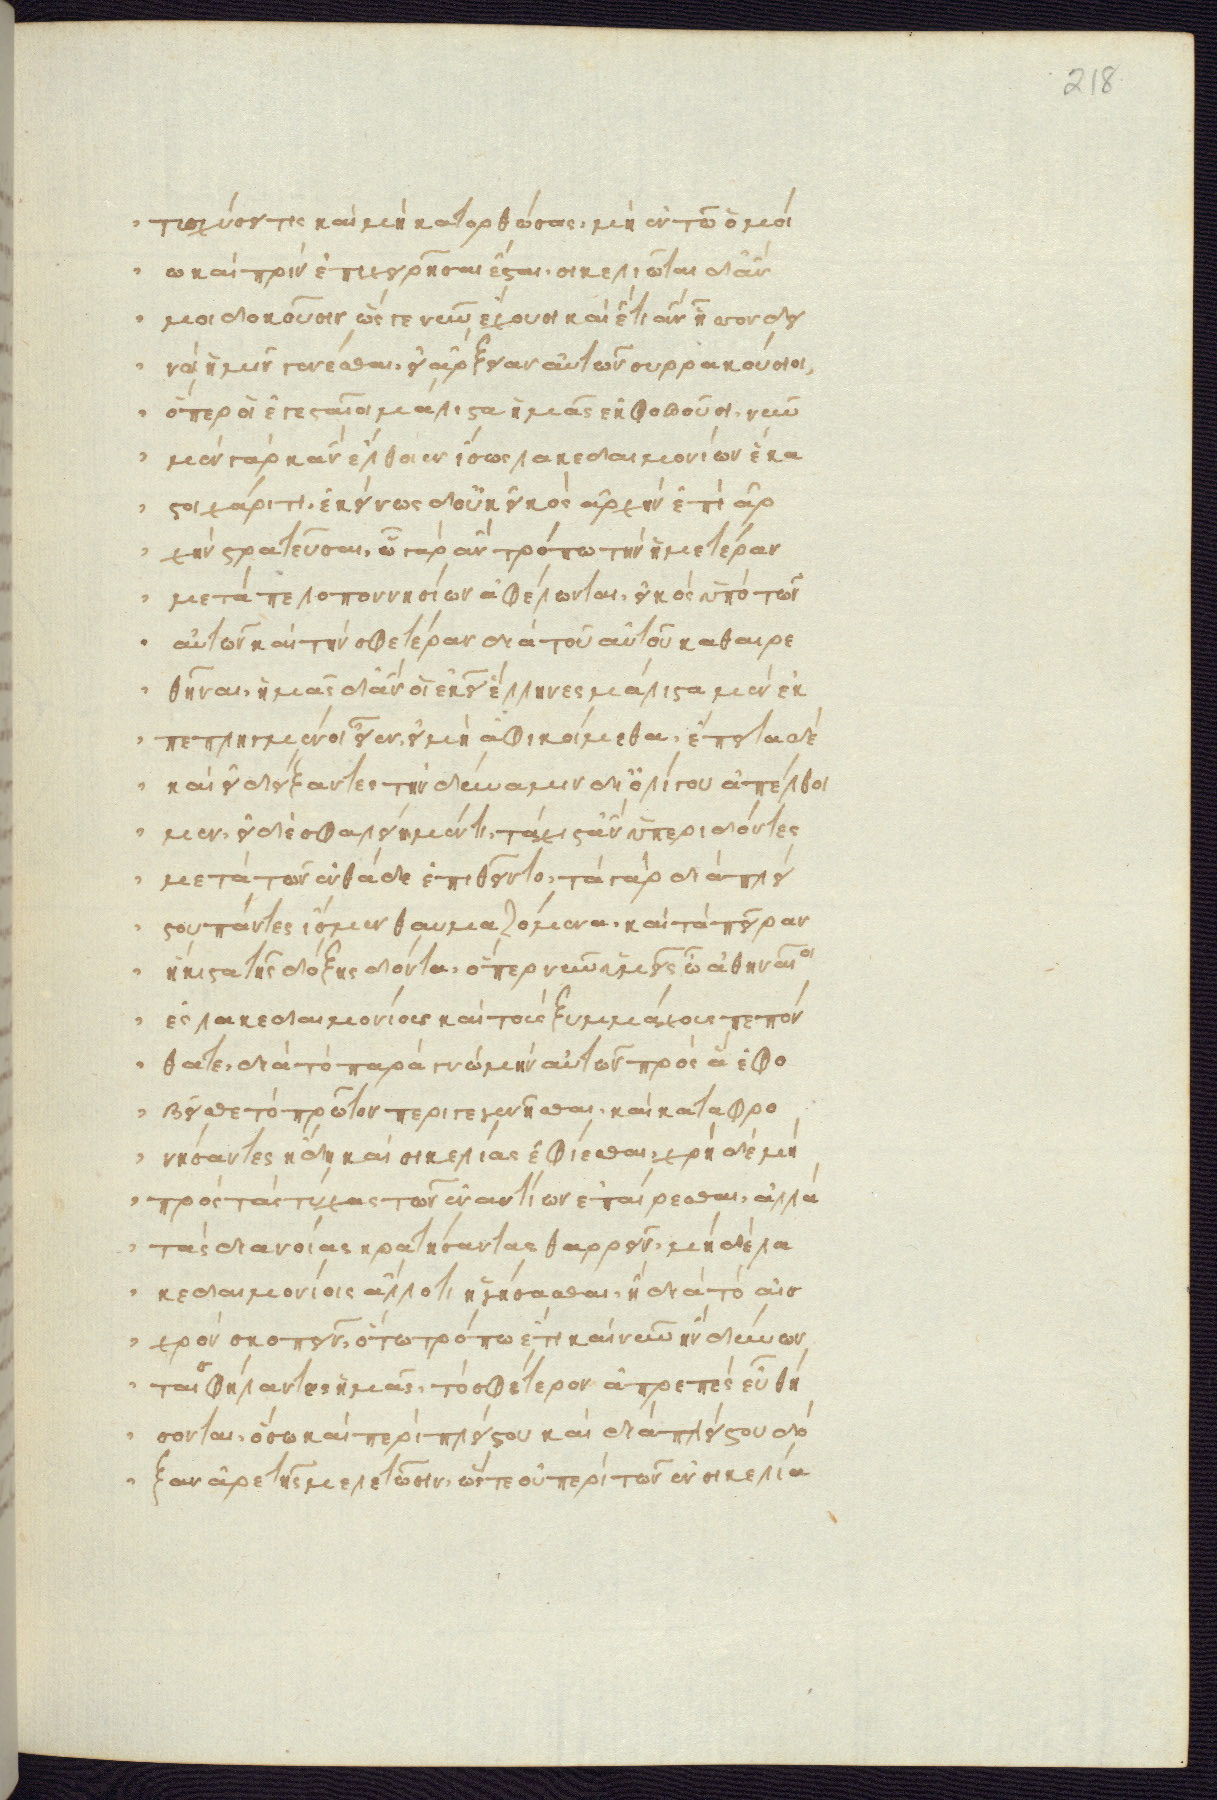 218
τισχύσῃ τις καὶ μὴ κατορθώσας, μὴ ἐν τῶ ὁμοί
ω καὶ πρὶν ἐπιχειρῆσαι ἔσται. σικελιῶται δ' ἄν
μοι δοκοῦσιν ὥς γε νῦν ἔχουσι καὶ ἔτι ἂν ἧσσον δει
νοὶ ἡμῖν γενέσθαι, εἰ ἄρξειαν αὐτῶν συρρακούσιοι,
ὅπερ οἱ ἐγεσταῖοι μάλιστα ἡμᾶς ἐκφοβοῦσι. νῦν
μὲν γὰρ κἂν ἔλθοιεν ἴσως λακεδαιμονίων ἕκα
στοι χάριτι. ἐκείνως δ' οὐκ εἰκὸς ἀρχὴν ἐπὶ ἀρ
χὴν στρατεῦσαι. ὧ γὰρ ἂν τρόπω τὴν ἡμετέραν
μετὰ πελοποννησίων ἀφέλωνται, εἰκὸς ὑπὸ τῶν
αὐτῶν καὶ τὴν σφετέραν διὰ τοῦ αὐτοῦ καθαιρε
θῆναι. ἡμᾶς δ' ἂν οἱ ἐκεῖ ἕλληνες μάλιστα μὲν ἐκ
πεπληγμένοι εἶεν, εἰ μὴ ἀφικοίμεθα, ἔπειτα δὲ
καὶ εἰ δείξαντες τὴν δύναμιν δι' ὀλίγου ἀπέλθοι
μεν. εἰ δὲ σφαλείημέν τι, τάχιστ' ἂν ὑπεριδόντες
μετὰ τῶν ἐνθάδε ἐπιθεῖντο. τὰ γὰρ διὰ πλεί
στου πάντες ἴσμεν θαυμαζόμενα, καὶ τὰ πεῖραν
ἥκιστα τῆς δόξης δόντα. ὅπερ νῦν ὑμεῖς ὦ ἀθηναῖοι
ἐς λακεδαιμονίους καὶ τοὺς ξυμμάχους πεπόν
θατε, διὰ τὸ παρὰ γνώμην αὐτῶν πρὸς ἃ ἐφο
βεῖσθε τὸ πρῶτον περιγεγενῆσθαι. καὶ καταφρο
νήσαντες ἤδη καὶ σικελίας ἐφίεσθαι. χρὴ δὲ μὴ
πρὸς τὰς τύχας τῶν ἐναντίων ἐπαίρεσθαι, ἀλλὰ
τὰς διανοίας κρατήσαντας θαρρεῖν. μηδὲ λα
κεδαιμονίοις ἄλλό τι ἡγήσασθαι, ἢ διὰ τὸ αἰσ
χρὸν σκοπεῖν, ὅτω τρόπω ἔτι καὶ νῦν ἢν δύνων
ται σφήλαντες ἡμᾶς, τὸ σφέτερον ἀπρεπὲς εὖ θή
σονται. ὅσω καὶ περὶ πλείστου καὶ διὰ πλείστου δό
ξαν ἀρετῆς μελετῶσιν. ὥστε οὐ περὶ τῶν ἐν σικελία